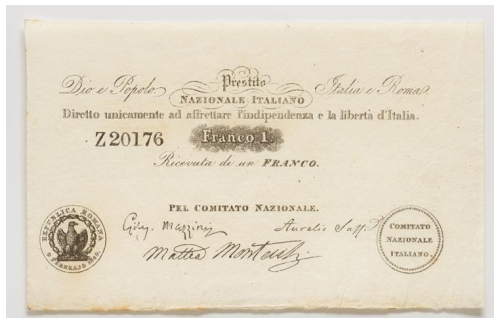 Dio e Popolo. Prestito Italia e Roma.
NAZIONALE ITALIANO
Diretto unicamente ad affrettare l'indipendenza e la libertà d'Italia.
Z 20176 Franco 1.
Ricevuta di un FRANCO.
PEL COMITATO NAZIONALE.
Gius. Mazzini Aurelio Saffi
Mattia Montecchi
REPUBBLICA ROMANA
9 FEBBRAJO
COMITATO
NAZIONALE
ITALIANO.